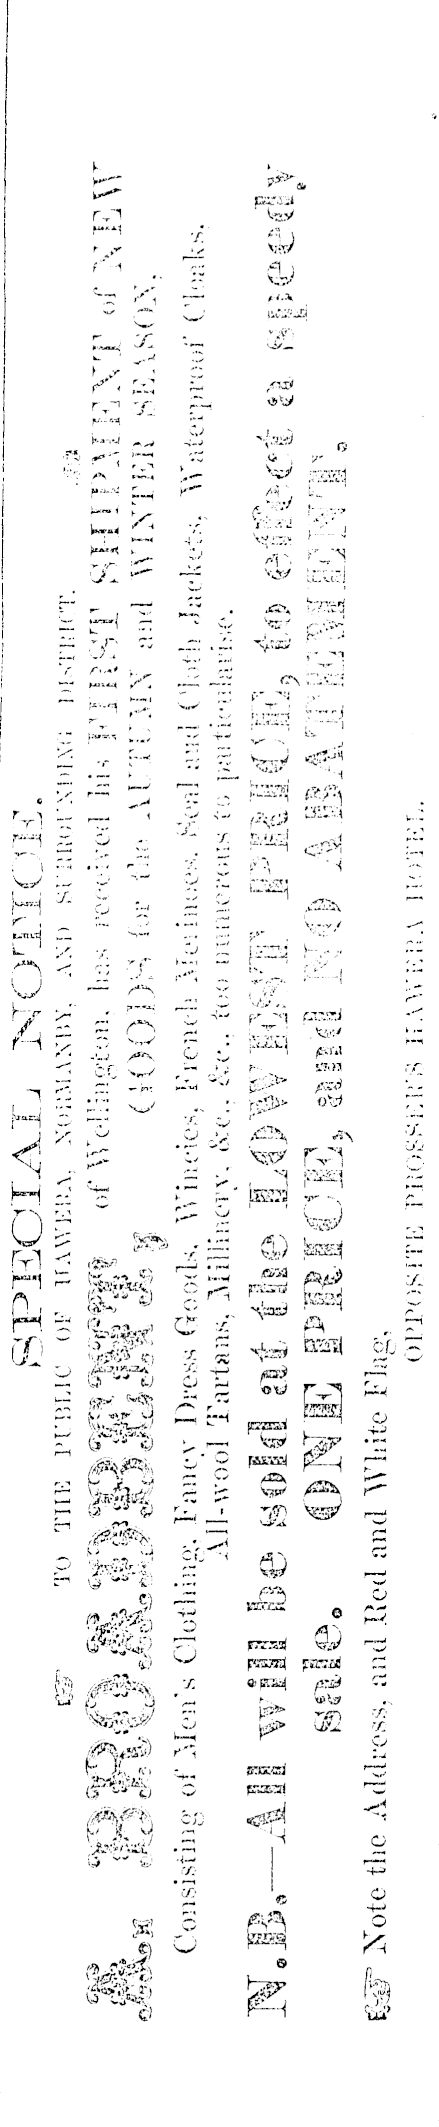 SPECIAL NOTICE.
TO THE PUBLIC OF HAWERA, NORMANBY, AND SURROUNDING DISTRICT.
A. BROADBENT,
of Wellington, has received his FIRST SHIPMENT of NEW
GOODS for the AUTUMN and WINTER SEASON,
Consisting of Men's Clothing, Fancy Dress Goods, Wincies, French Merinoes, Seal and Cloth Jackets, Waterproof Cloaks,
All-wool Tartans, Millinery, &c., &c., too numerous to particularise.
N.B.—All will be sold at the LOWEST PRICE, to effect a speedy
sale. ONE PRICE, and NO ABATEMENT.
Note the Address, and Red and White Flag,
OPPOSITE PROSSER'S HAWERA HOTEL.